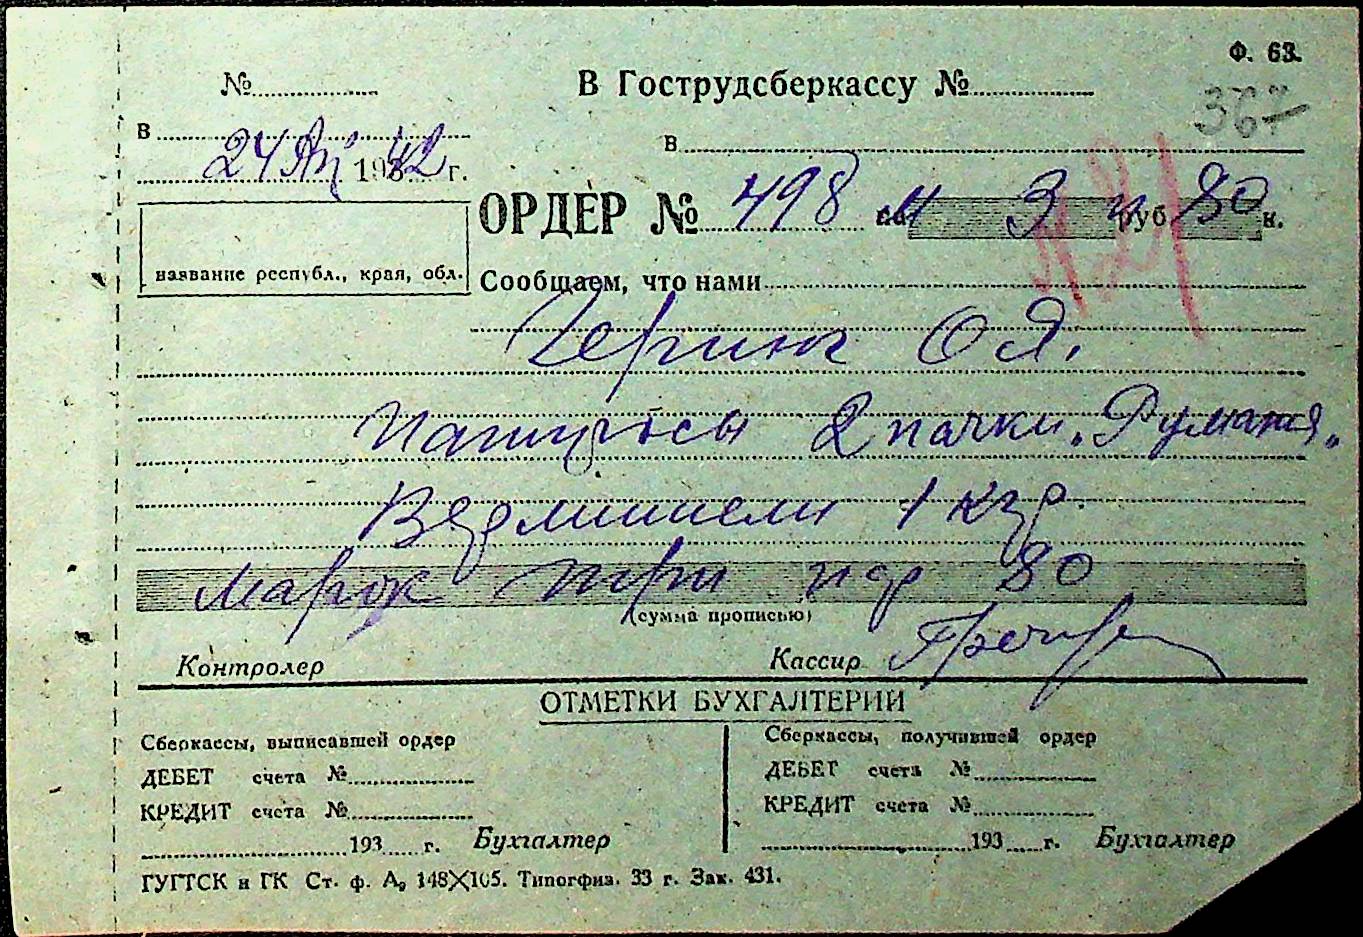 Ф. 63.
№
В Гострудсберкассу №
367
в
в
24 Ап 1942 г.
ОРДЕР № 498 М 3 п 80 к.
руб
название республ., края, обл.
Сообщаем, что нами
Геринг О Я.
Папиросы 2 пачки "Румыния"
Вермишели 1 кгр.
Марок три пф 80
(сумма прописью)
Контролер
Кассир
ОТМЕТКИ БУХГАЛТЕРИИ
Сберкассы, выписавшей ордер
Сберкассы, получившей ордер
ДЕБЕТ счета №
ДЕБЕТ счета №
КРЕДИТ счета №
КРЕДИТ счета №
193 г. Бухгалтер
193 г. Бухгалтер
ГУГТСК и ГК Ст. ф. А₆ 148×105. Типогфиз. 33 г. Зак. 431.